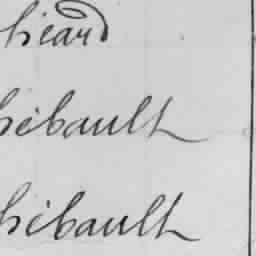 héard
hébault
hébault